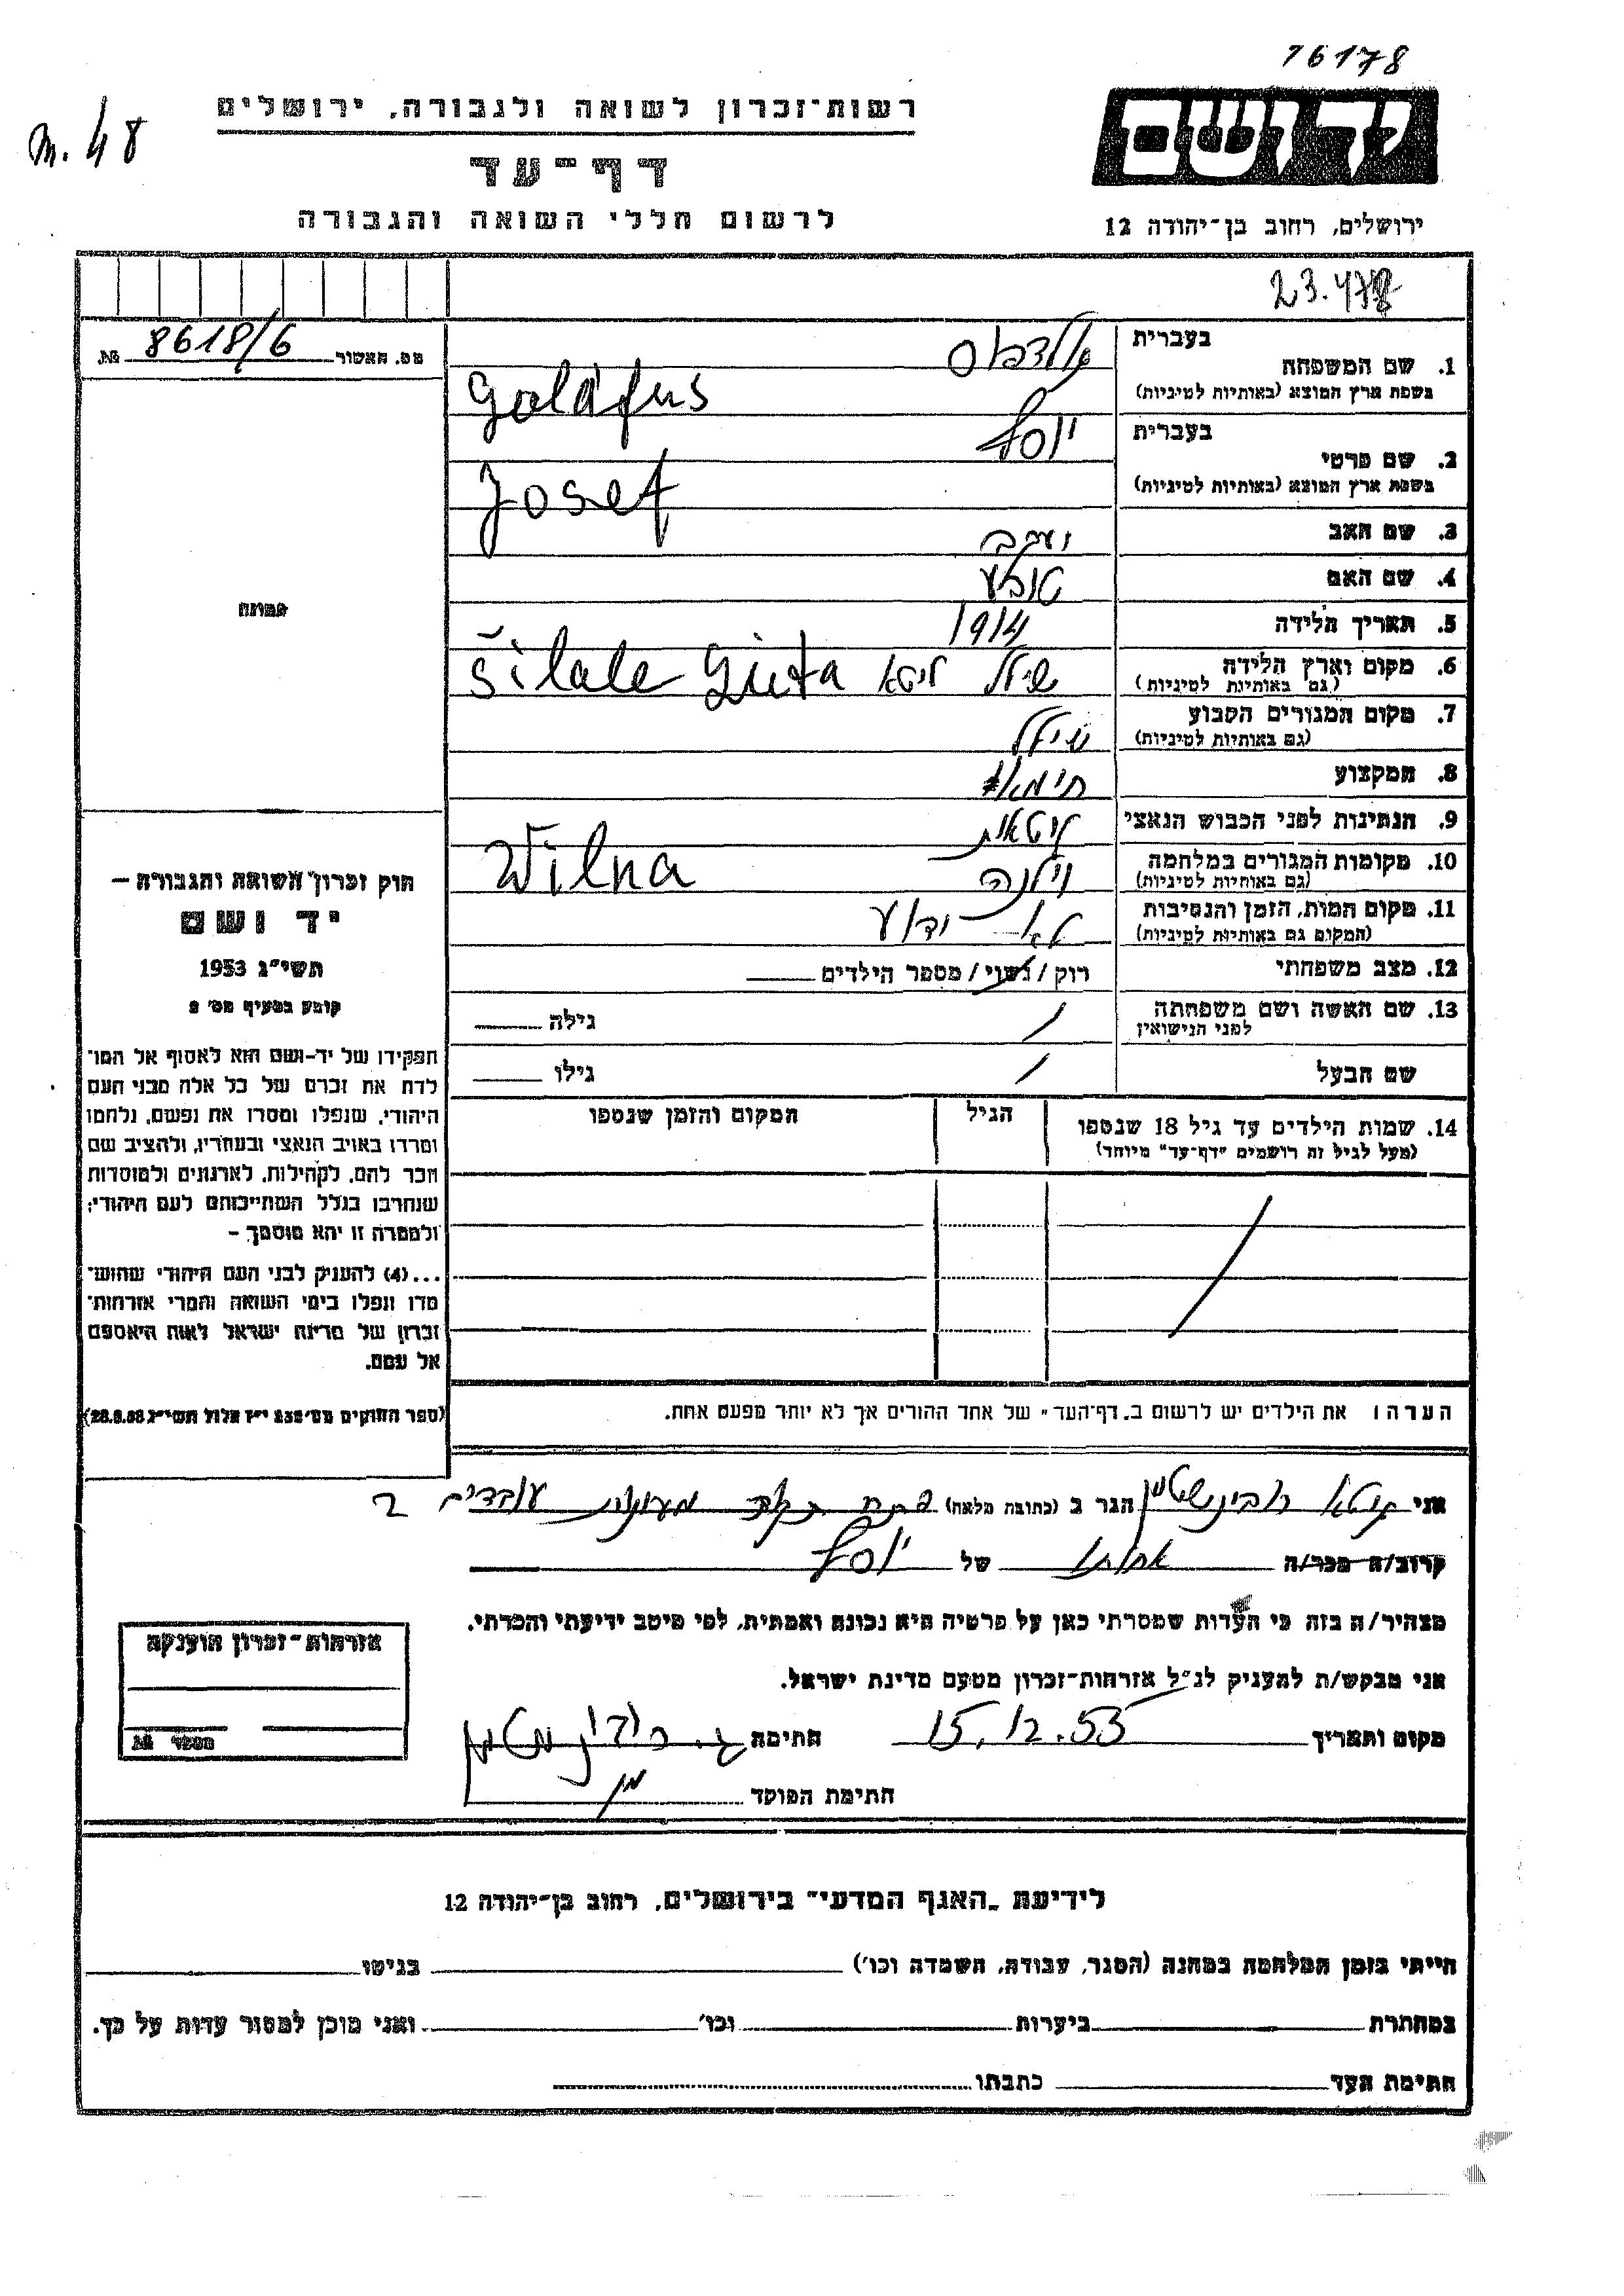 16178
m. 48
יד ושם
רשות־זכרון לשואה ולגבורה, ירושלים
דף־עד
לרשום חללי השואה והגבורה
ירושלים, רחוב בן־יהודה 12
23.478
מס. האשור № 8618/6
בעברית
1. שם המשפחה גולדפוס
בשפת ארץ המוצא (באותיות לטיניות) Goldfus
בעברית
2. שם פרטי יוסף
בשפת ארץ המוצא (באותיות לטיניות) Josef
3. שם האב יעקב
4. שם האם טובע
5. תאריך הלידה 1914
6. מקום וארץ הלידה שילל ליטא Šilale
(גם באותיות לטיניות)
7. מקום המגורים הקבוע שילל
(גם באותיות לטיניות)
8. המקצוע
9. הנתינות לפני הכבוש הנאצי ליטאית
10. מקומות המגורים במלחמה וילנה Wilna
(גם באותיות לטיניות)
11. מקום המות, הזמן והנסיבות לא ידוע
(המקום גם באותיות לטיניות)
12. מצב משפחתי רוק / נשוי / מספר הילדים
13. שם האשה ושם משפחתה / גילה
לפני הנישואין
שם הבעל / גילו
14. שמות הילדים עד גיל 18 שנספו הגיל המקום והזמן שנספו
(מעל לגיל זה רושמים "דף־עד" מיוחד)
הערה: את הילדים יש לרשום ב„דף־העד" של אחד ההורים אך לא יותר מפעם אחת.
תמונה
חוק זכרון השואה והגבורה —
יד ושם
תשי"ג 1953
קובע בסעיף מס' 2
תפקידו של יד-ושם הוא לאסוף אל המו־
לדת את זכרם של כל אלה מבני העם
היהודי, שנפלו ומסרו את נפשם, נלחמו
ומרדו באויב הנאצי ובעוזריו, ולהציב שם
וזכר להם, לקהילות, לארגונים ולמוסדות
שנחרבו בגלל השתייכותם לעם היהודי;
ולמטרה זו יהא מוסמך –
...(4) להעניק לבני העם היהודי שהוש־
מדו ונפלו בימי השואה והמרי אזרחות־
זכרון של מדינת ישראל לאות היאספם
אל עמם.
(ספר החוקים מס' 132 י"ז אלול תשי"ג 28.8.53)
אני גיטא רובינשטיין הגר ב (כתובת מלאה) פתח תקוה מעונות עובדים ב
קרוב/ה מכר/ה אחותו של יוסף
מצהיר/ה בזה כי העדות שמסרתי כאן על פרטיה היא נכונה ואמתית, לפי מיטב ידיעתי והכרתי.
אני מבקש/ת להעניק לנ"ל אזרחות-זכרון מטעם מדינת ישראל.
מקום ותאריך 15.12.53 חתימה ג. רובינשטיין
חתימת הפוקד
אזרחות-זכרון הוענקה
מספר №
לידיעת „האגף המדעי" בירושלים, רחוב בן־יהודה 12
הייתי בזמן המלחמה במחנה (הסגר, עבודה, השמדה וכו') בגיטו
במחתרת ביערות וכו' ואני מוכן למסור עדות על כך.
חתימת העד כתבתו